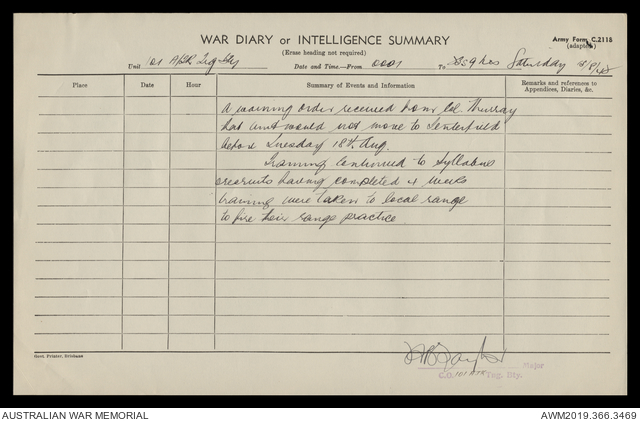 WAR DIARY or INTELLIGENCE SUMMARY
(Erase heading not required)
Army Form C.2118
(adapted)
Unit 101 A/TK Trg Bty Date and Time—From 0001 To 2359 hrs Saturday 15/8/42
Place Date Hour Summary of Events and Information Remarks and references to Appendices, Diaries, &c.
A warning order received from Col. Murray
that unit would not move to Tenterfield
before Tuesday 18th Aug.
Training continued to Syllabus
recruits having completed 4 weeks
training were taken to local range
to fire their range practice
Govt. Printer, Brisbane
Major
C.O. 101 A/TK Trg. Bty.
AUSTRALIAN WAR MEMORIAL
AWM2019.366.3469